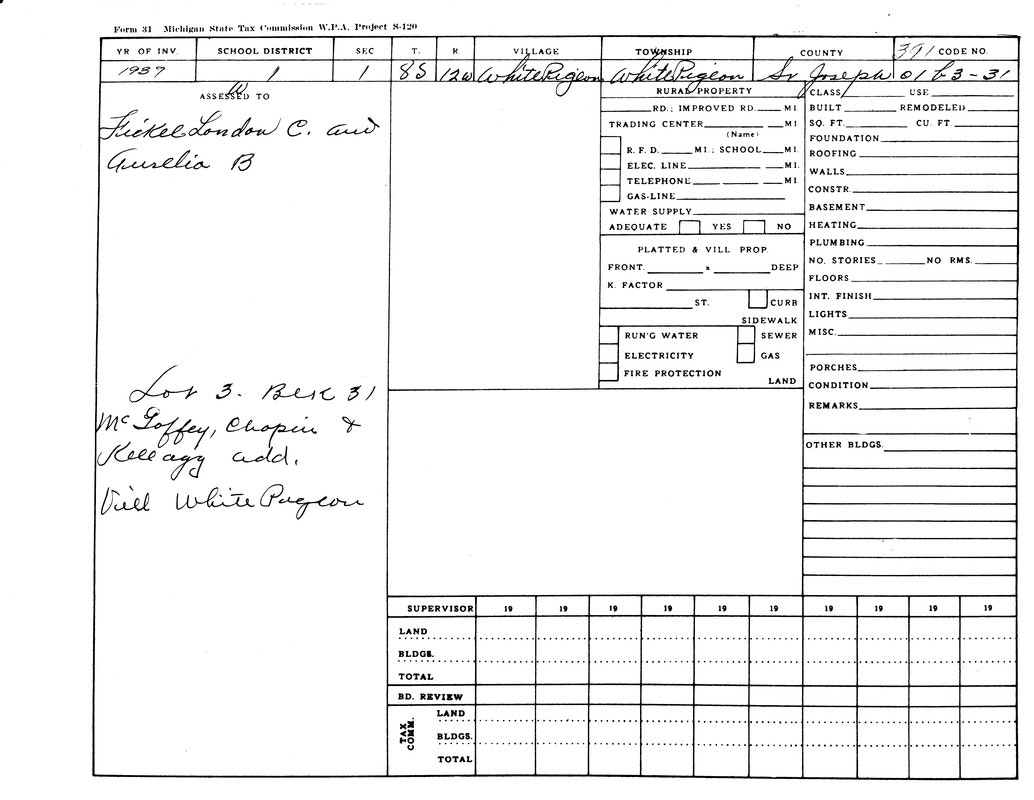 Form 31 Michigan State Tax Commission W.P.A. Project S-120
YR OF INV. SCHOOL DISTRICT SEC T. R VILLAGE TOWNSHIP COUNTY 391 CODE NO.
1937 1 1 8S 12W White Pigeon White Pigeon St Joseph 01 63-31
ASSESSED TO
Fickel London C. and
Aurelia B
Lot 3. Blk 31
McGaffey, Chopin &
Kellagy add.
Vill White Pigeon
RURAL PROPERTY
RD.; IMPROVED RD. MI
TRADING CENTER MI
(Name)
R. F. D. MI.; SCHOOL MI.
ELEC. LINE MI.
TELEPHONE MI.
GAS-LINE
WATER SUPPLY
ADEQUATE YES NO
PLATTED & VILL PROP.
FRONT. x DEEP
K. FACTOR
ST. CURB
SIDEWALK
RUN'G WATER SEWER
ELECTRICITY GAS
FIRE PROTECTION
LAND
CLASS USE
BUILT REMODELED
SQ. FT. CU. FT.
FOUNDATION
ROOFING
WALLS
CONSTR.
BASEMENT
HEATING
PLUMBING
NO. STORIES NO RMS.
FLOORS
INT. FINISH
LIGHTS
MISC.
PORCHES
CONDITION
REMARKS
OTHER BLDGS.
SUPERVISOR 19 19 19 19 19 19 19 19 19 19
LAND
BLDGS.
TOTAL
BD. REVIEW
TAX COMM.
LAND
BLDGS.
TOTAL